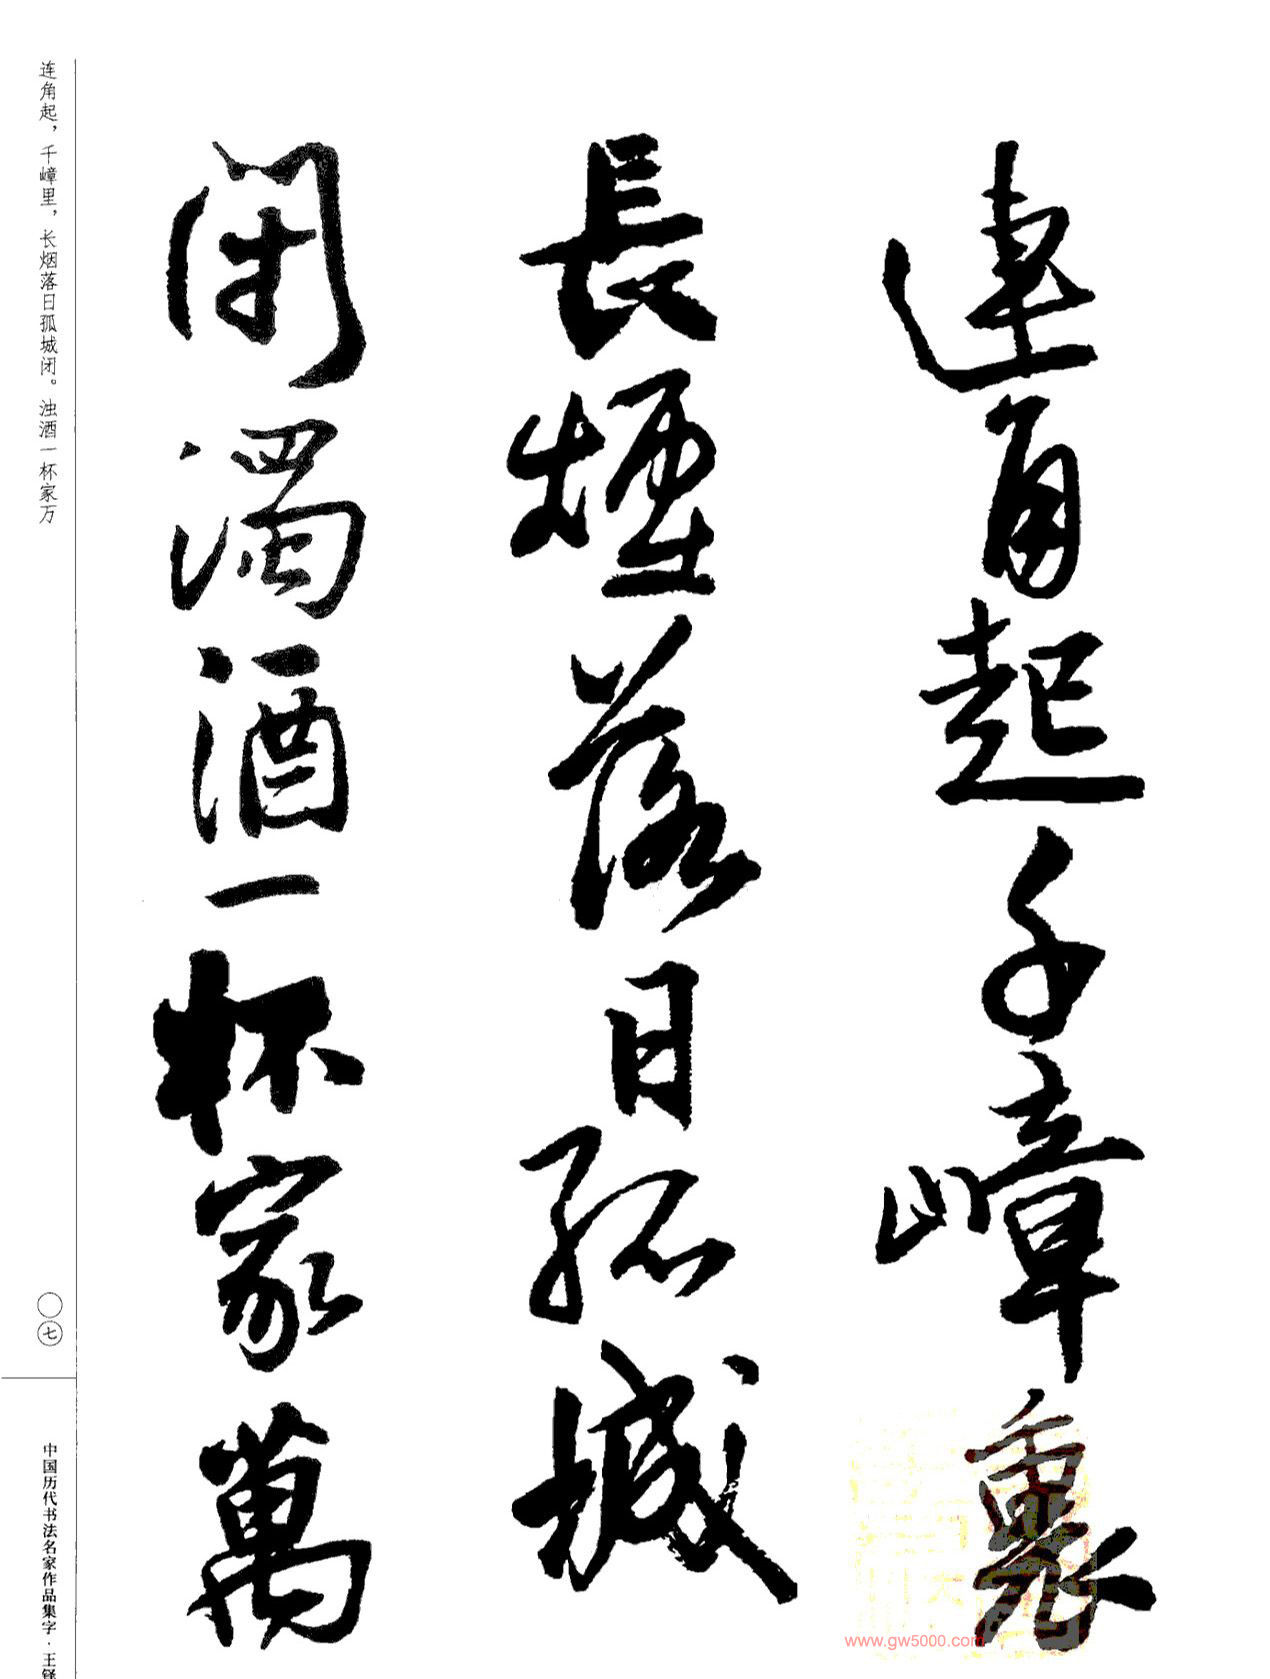 連角起千嶂裏
長煙落日孤城
閉濁酒一杯家萬
连角起，千嶂里，长烟落日孤城闭。浊酒一杯家万
〇七
中国历代书法名家作品集字·王铎
www.gw5000.com